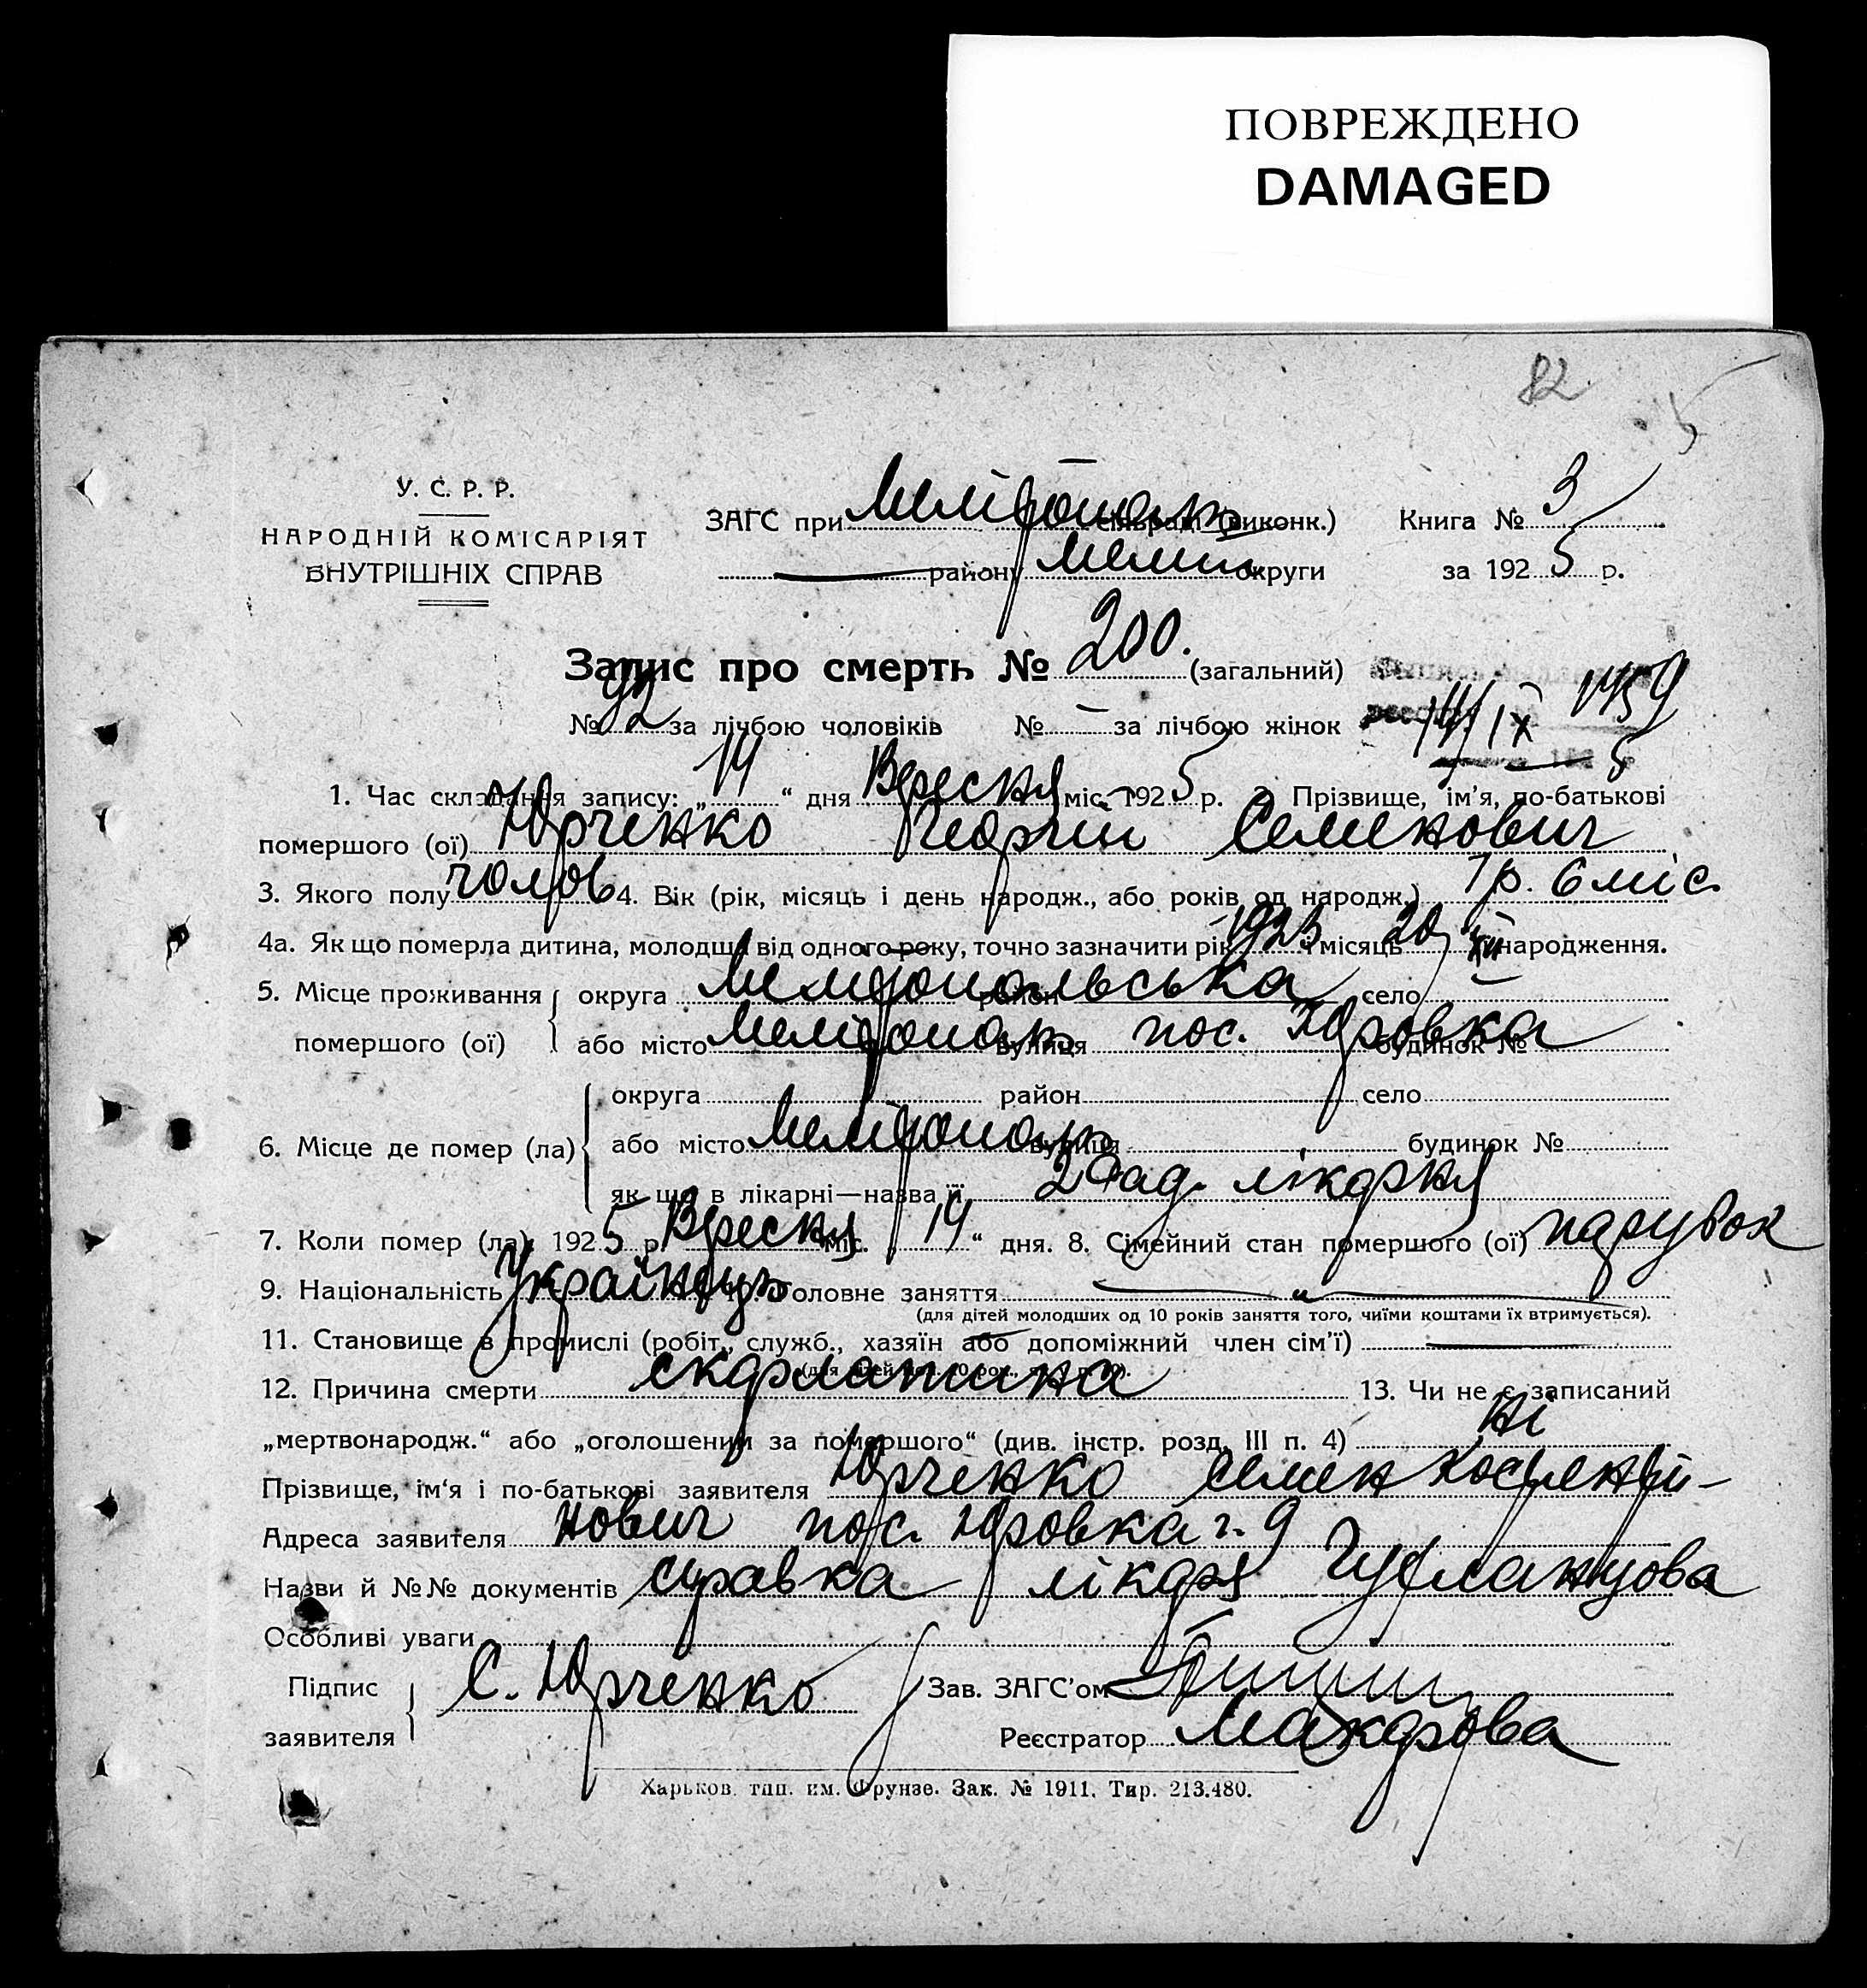 ПОВРЕЖДЕНО
DAMAGED
82
У. С. Р. Р.
НАРОДНІЙ КОМІСАРІЯТ
ВНУТРІШНІХ СПРАВ
ЗАГС при Мелітополь сільраді (виконк.) Книга № 3
району Меліт округи за 1925 р.
Запис про смерть № 200. (загальний)
№ 92 за лічбою чоловіків № – за лічбою жінок
14/IX 5
1. Час складання запису: „14“ дня Вересня міс. 1925 р. 2. Прізвище, ім'я, по-батькові
помершого (ої) Юрченко Георгій Семенович
3. Якого полу чолов 4. Вік (рік, місяць і день народж., або років од народж.) 1 р. 6 міс.
4а. Як що померла дитина, молодша від одного року, точно зазначити рік 1923 місяць 20 народження.
5. Місце проживання округа Мелітопольська район село
помершого (ої) або місто Мелітополь вулиця пос. Юровка будинок №
округа район село
6. Місце де помер (ла) або місто Мелітополь вулиця будинок №
як що в лікарні—назва її 2 Рад. лікарня
7. Коли помер (ла) 1925 р. Вересня міс. „14“ дня. 8. Сімейний стан помершого (ої) парубок
9. Національність Українець 10. Головне заняття "
(для дітей молодших од 10 років заняття того, чиїми коштами їх втримується).
11. Становище в промислі (робіт., служб., хазяїн або допоміжний член сім'ї) —
12. Причина смерти скарлатина 13. Чи не є записаний
„мертвонародж.“ або „оголошений за помершого“ (див. інстр. розд. III п. 4) Ні
Прізвище, ім'я і по-батькові заявителя Юрченко Семен
Адреса заявителя нович пос. Юровка г. 9
Назви й №№ документів справка лікаря
Особливі уваги
Підпис С. Юрченко Зав. ЗАГС'ом
заявителя Реєстратор Макарова
Харьков. тип. им. Фрунзе. Зак. № 1911. Тир. 213.480.